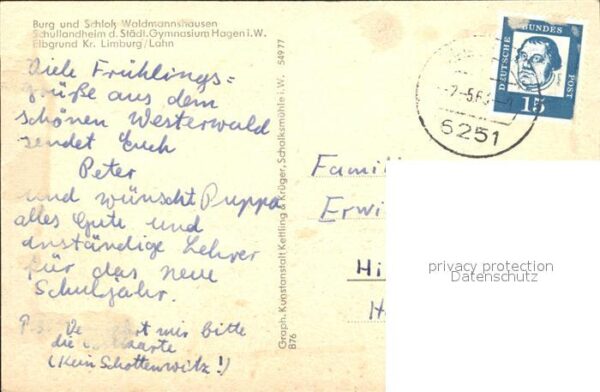 Burg und Schloß Waldmannshausen
Schullandheim d. Städt. Gymnasium Hagen i.W.
Elbgrund Kr. Limburg/Lahn
Viele Frühlings=
grüße aus dem
schönen Westerwald
sendet Euch
Peter
und wünscht Puppa
alles Gute und
anständige Lehrer
für das neue
Schuljahr.
mir bitte
die
(Kein Schottenwitz!)
54977
Graph. Kunstanstalt Kettling & Krüger, Schalksmühle i. W.
B76
DEUTSCHE
BUNDES
POST
15
6251
Famil
Erwi
Hi
H
privacy protection
Datenschutz